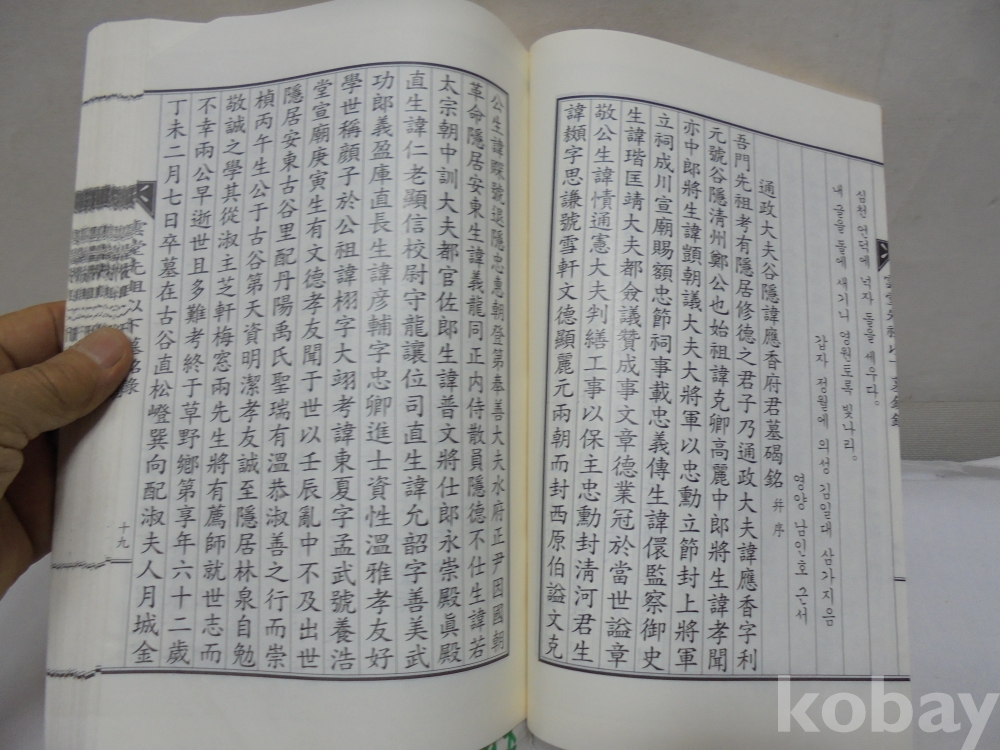 심천 언덕에 넉자 돌을 세우다.
내 글을 돌에 새기니 영원토록 빛나리.
갑자 정월에 의성 김일대 삼가지음
영양 남인호 근서
通政大夫谷隱諱應香府君墓碣銘 幷序
吾門先祖考有隱居修德之君子乃通政大夫諱應香字利
元號谷隱淸州鄭公也始祖諱克卿高麗中郎將生諱孝聞
亦中郎將生諱顗朝議大夫大將軍以忠勳立節封上將軍
立祠成川宣廟賜額忠節祠事載忠義傳生諱儇監察御史
生諱瑎匡靖大夫都僉議贊成事文章德業冠於當世謚章
敬公生諱𢢜通憲大夫判繕工事以保主忠勳封淸河君生
諱䫨字思謙號雪軒文德顯麗元兩朝而封西原伯謚文克
公生諱 號退隱忠惠朝登第奉善大夫水府正尹因國朝
革命隱居安東生諱義龍同正內侍散員隱德不仕生諱若
太宗朝中訓大夫都官佐郎生諱普文將仕郎永崇殿眞殿
直生諱仁老顯信校尉守龍讓位司直生諱允韶字善美武
功郎義盈庫直長生諱彦輔字忠卿進士資性溫雅孝友好
學世稱顔子於公祖諱栩字大翊考諱東夏字孟武號養浩
堂宣廟庚寅生有文德孝友聞于世以壬辰亂中不及出世
隱居安東古谷里配丹陽禹氏聖瑞有溫恭淑善之行而崇
楨丙午生公于古谷第天資明潔孝友誠至隱居林泉自勉
敬誠之學其從淑主芝軒梅窓兩先生將有薦師就世志而
不幸兩公早逝世且多難考終于草野鄕第享年六十二歲
丁未二月七日卒墓在古谷直松嶝巽向配淑夫人月城金
雲堂先祖以下墓碣錄
十九
kobay